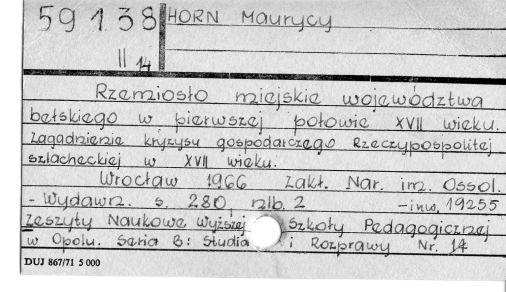 59138
HORN Maurycy
II 14
Rzemiosło miejskie województwa
bełskiego w pierwszej połowie XVII wieku.
Zagadnienie kryzysu gospodarczego Rzeczypospolitej
szlacheckiej w XVII wieku.
Wrocław 1966 Zakł. Nar. im. Ossol.
- Wydawn. s. 280, nlb. 2 -inw. 19255
Zeszyty Naukowe Wyższej Szkoły Pedagogicznej
w Opolu. Seria B: Studia i Rozprawy Nr. 14
DUJ 867/71 5 000